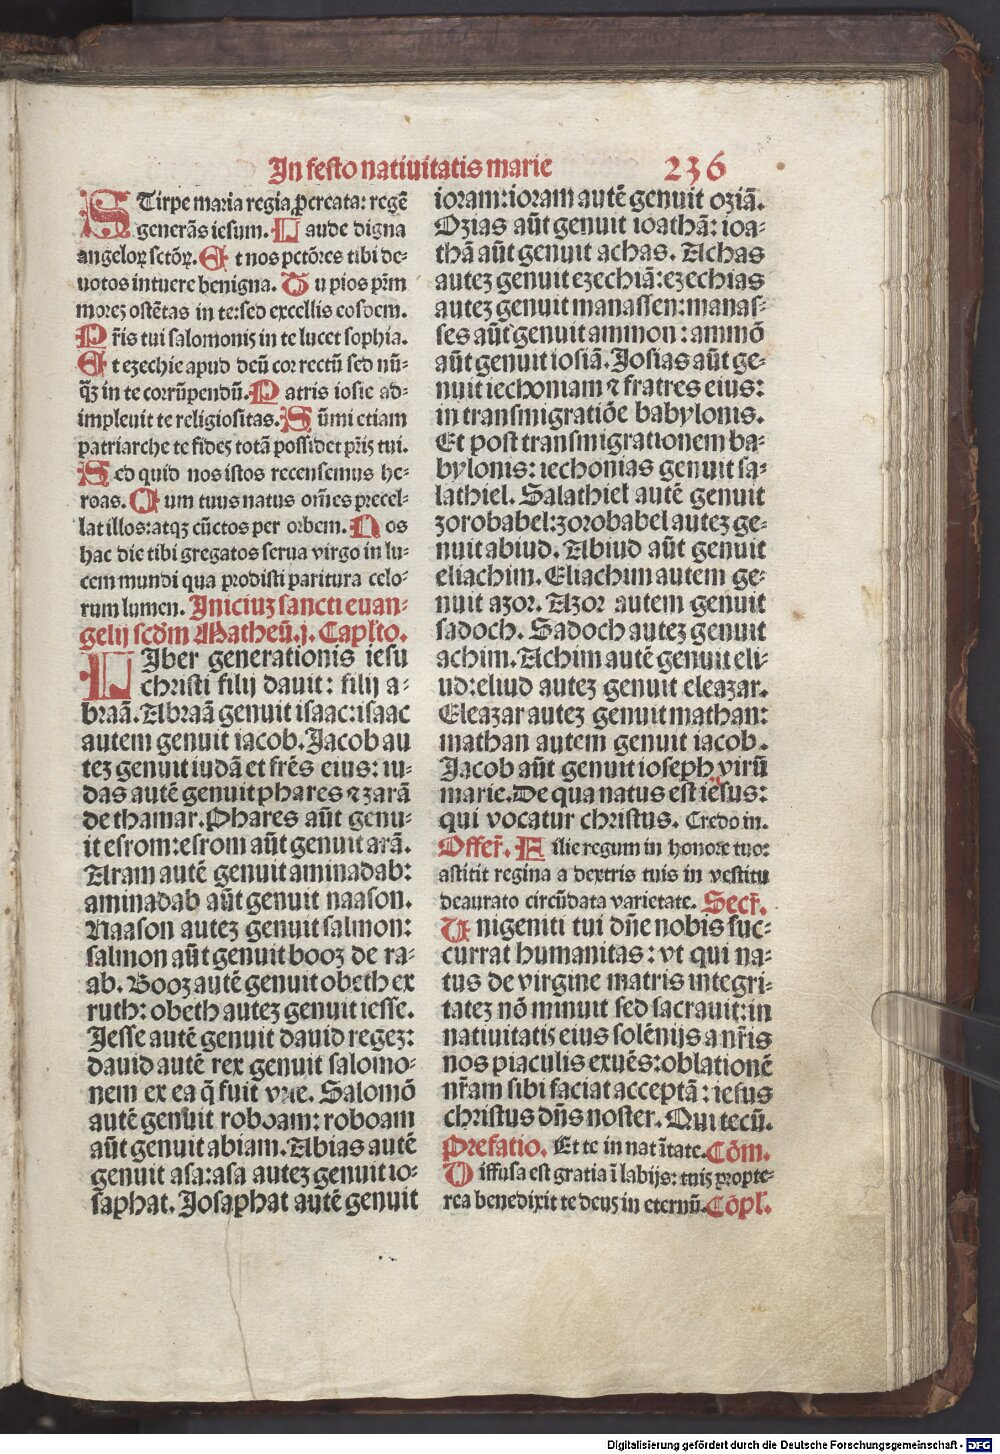 In festo natiuitatis marie 236
STirpe maria regia ꝓcreata: regē
generās iesum. Laude digna
angeloꝝ sctōꝝ. Et nos pctōres tibi de⸗
uotos intuere benigna. Tu pios prīm
moreꝫ ostētas in te:sed excellis eosdem.
Pr̄is tui salomonis in te lucet sophia.
Et ezechie apud deū cor rectū sed nū⸗
q̄ꝫ in te corrūpendū. Patris iosie ad⸗
impleuit te religiositas. Sūmi etiam
patriarche te fides totā possidet pr̄is tui.
Sed quid nos istos recensemus he⸗
roas. Cum tuus natus om̄es precel⸗
lat illos:atqꝫ cūctos per orbem. Nos
hac die tibi gregatos serua virgo in lu⸗
cem mundi qua prodisti paritura celo⸗
rum lumen. Iniciuꝫ sancti euan⸗
gelij scd̄m Matheū.j. Capl̓to.
LIber generationis iesu
christi filij dauit: filij a⸗
braā. Abraā genuit isaac:isaac
autem genuit iacob. Jacob au
teꝫ genuit iudā et fr̄es eius: iu⸗
das autē genuit phares ⁊ zarā
de thamar. Phares aūt genu⸗
it esrom:esrom aūt genuit arā.
Aram autē genuit aminadab:
aminadab aūt genuit naason.
Naason auteꝫ genuit salmon:
salmon aūt genuit booz de ra⸗
ab. Booz autē genuit obeth ex
ruth: obeth auteꝫ genuit iesse.
Jesse autē genuit dauid regeꝫ:
dauid autē rex genuit salomo⸗
nem ex ea q̄ fuit vrie. Salomō
autē genuit roboam: roboam
aūt genuit abiam. Abias autē
genuit asa:asa auteꝫ genuit io⸗
saphat. Josaphat autē genuit
ioram:ioram autē genuit oziā.
Ozias aūt genuit ioathā: ioa⸗
thā aūt genuit achas. Achas
auteꝫ genuit ezechiā:ezechias
auteꝫ genuit manassen:manas⸗
ses aūt genuit ammon: ammō
aūt genuit iosiā. Josias aūt ge⸗
nuit iechoniam ⁊ fratres eius:
in transmigratiōe babylonis.
Et post transmigrationem ba⸗
bylonis: iechonias genuit sa⸗
lathiel. Salathiel autē genuit
zorobabel:zorobabel auteꝫ ge⸗
nuit abiud. Abiud aūt genuit
eliachim. Eliachim autem ge⸗
nuit azor. Azor autem genuit
sadoch. Sadoch auteꝫ genuit
achim. Achim autē genuit eli⸗
ud:eliud auteꝫ genuit eleazar.
Eleazar auteꝫ genuit mathan:
mathan autem genuit iacob.
Jacob aūt genuit ioseph virū
marie. De qua natus est iesus:
qui vocatur christus. Credo in.
Offer̄. Filie regum in honore tuo:
astitit regina a dextris tuis in vestitu
deaurato circūdata varietate. Secr̄.
Unigeniti tui dn̄e nobis suc⸗
currat humanitas: vt qui na⸗
tus de virgine matris integri⸗
tateꝫ nō minuit sed sacrauit:in
natiuitatis eius solēnijs a nr̄is
nos piaculis exuēs:oblationē
nr̄am sibi faciat acceptā: iesus
christus dn̄s noster. Qui tecū.
Prefatio. Et te in nat ītate. Cōm.
Diffusa est gratia ī labijs: tuis propte⸗
rea benedixit te deus in eternū. Cōpl̄.
Digitalisierung gefördert durch die Deutsche Forschungsgemeinschaft - DFG